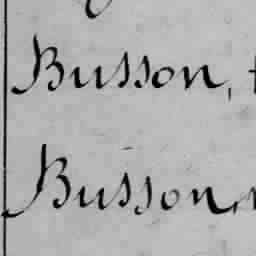 Busson,
Busson,